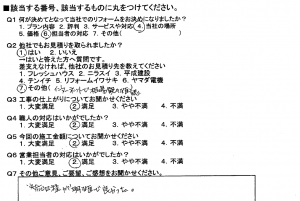 ■該当する番号、該当するものに丸をつけてください。
Q1 何が決めてとなって当社でのリフォームをお決めになりましたか?
1. プラン内容 2. 評判 3. サービスや対応 4. 当社の場所
5. 価格 6. 担当者の対応 7. その他(
Q2 他社でもお見積りを取られましたか?
1. はい 2. いいえ
→はいと答えた方へ質問です。
差支えなければ、他社のお見積り先を教えてください
1. フレッシュハウス 2. ニラスイ 3. 平成建設
4. テンイチ 5. リフォームイワサキ 6. ヤマダ電機
7. その他(
Q3 工事の仕上がりについてお聞かせください
1. 大変満足 2. 満足 3. やや不満 4. 不満
Q4 職人の対応はいかがでしたか?
1. 大変満足 2. 満足 3. やや不満 4. 不満
Q5 今回の施工金額についてお聞かせください
1. 大変満足 2. 満足 3. やや不満 4. 不満
Q6 営業担当者の対応はいかがでしたか?
1. 大変満足 2. 満足 3. やや不満 4. 不満
Q7 その他ご意見、ご要望、ご感想をお聞かせください。